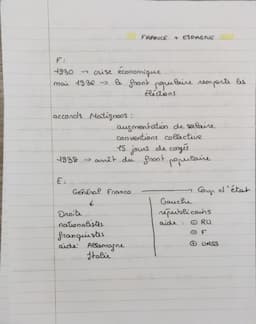 FRANCE + ESPAGNE
F:
1930 → crise économique
mai 1936 → le front populaire remporte les
élections
accords Matignons :
augmentation de salaire
conventions collective
15 jours de congés
1938 → arrêt du front populaire
E:
Général Franco → Coup d'État
↓
Droite
nationalistes
franquistes
aide: Allemagne
Italie
Gauche
républicains
aide : ⊖ RU
⊖ F
⊕ URSS